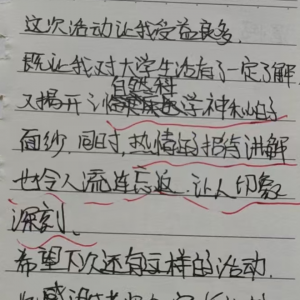 这次活动让我受益良多.
既让我对大学生活有了一定了解
自然科
又揭开了学神秘的
面纱.同时,热情的招待讲解
也令人流连忘返.让人印象
深刻.
希望下次还有这样的活动.